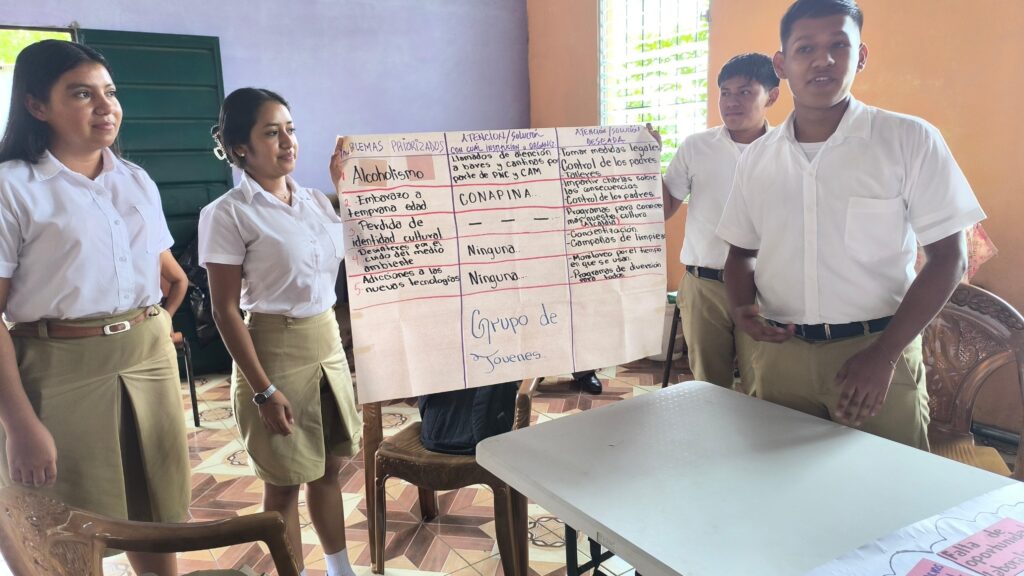 PROBLEMAS PRIORIZADOS
ATENCION/SOLUCIÓN
CON CUAL INSTITUCIÓN U ORGANIZ.
ATENCIÓN/SOLUCIÓN
DESEADA
Alcoholismo
Llamados de atención
a bares y cantinas por
parte de PNC y CAM
Tomar medidas legales
Control de los padres
Talleres
2. Embarazo a
temprana edad
CONAPINA
Impartir charlas sobre
las consecuencias
Control de los padres
3. Perdida de
identidad cultural
— — —
Programas para conocer
mas nuestra cultura
cuido del medio
ambiente
Ninguna...
- Concientización
- Campañas de limpieza
5. Adicciones a las
nuevas tecnologías
Ninguna...
Monitoreo por el tiempo
es que se usan.
- Programas de diversión
Grupo de
Jovenes.
Falta de